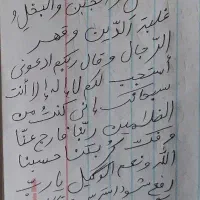 والجبن والبخل و
غلبة الدين وقهر
الرجال وقال ربكم ادعوني
أستجب لكم لا إله إلا أنت
سبحانك إني كنت من
الظالمين ربنا فارج عنا
حسبنا
الله ونعم الوكيل يارب